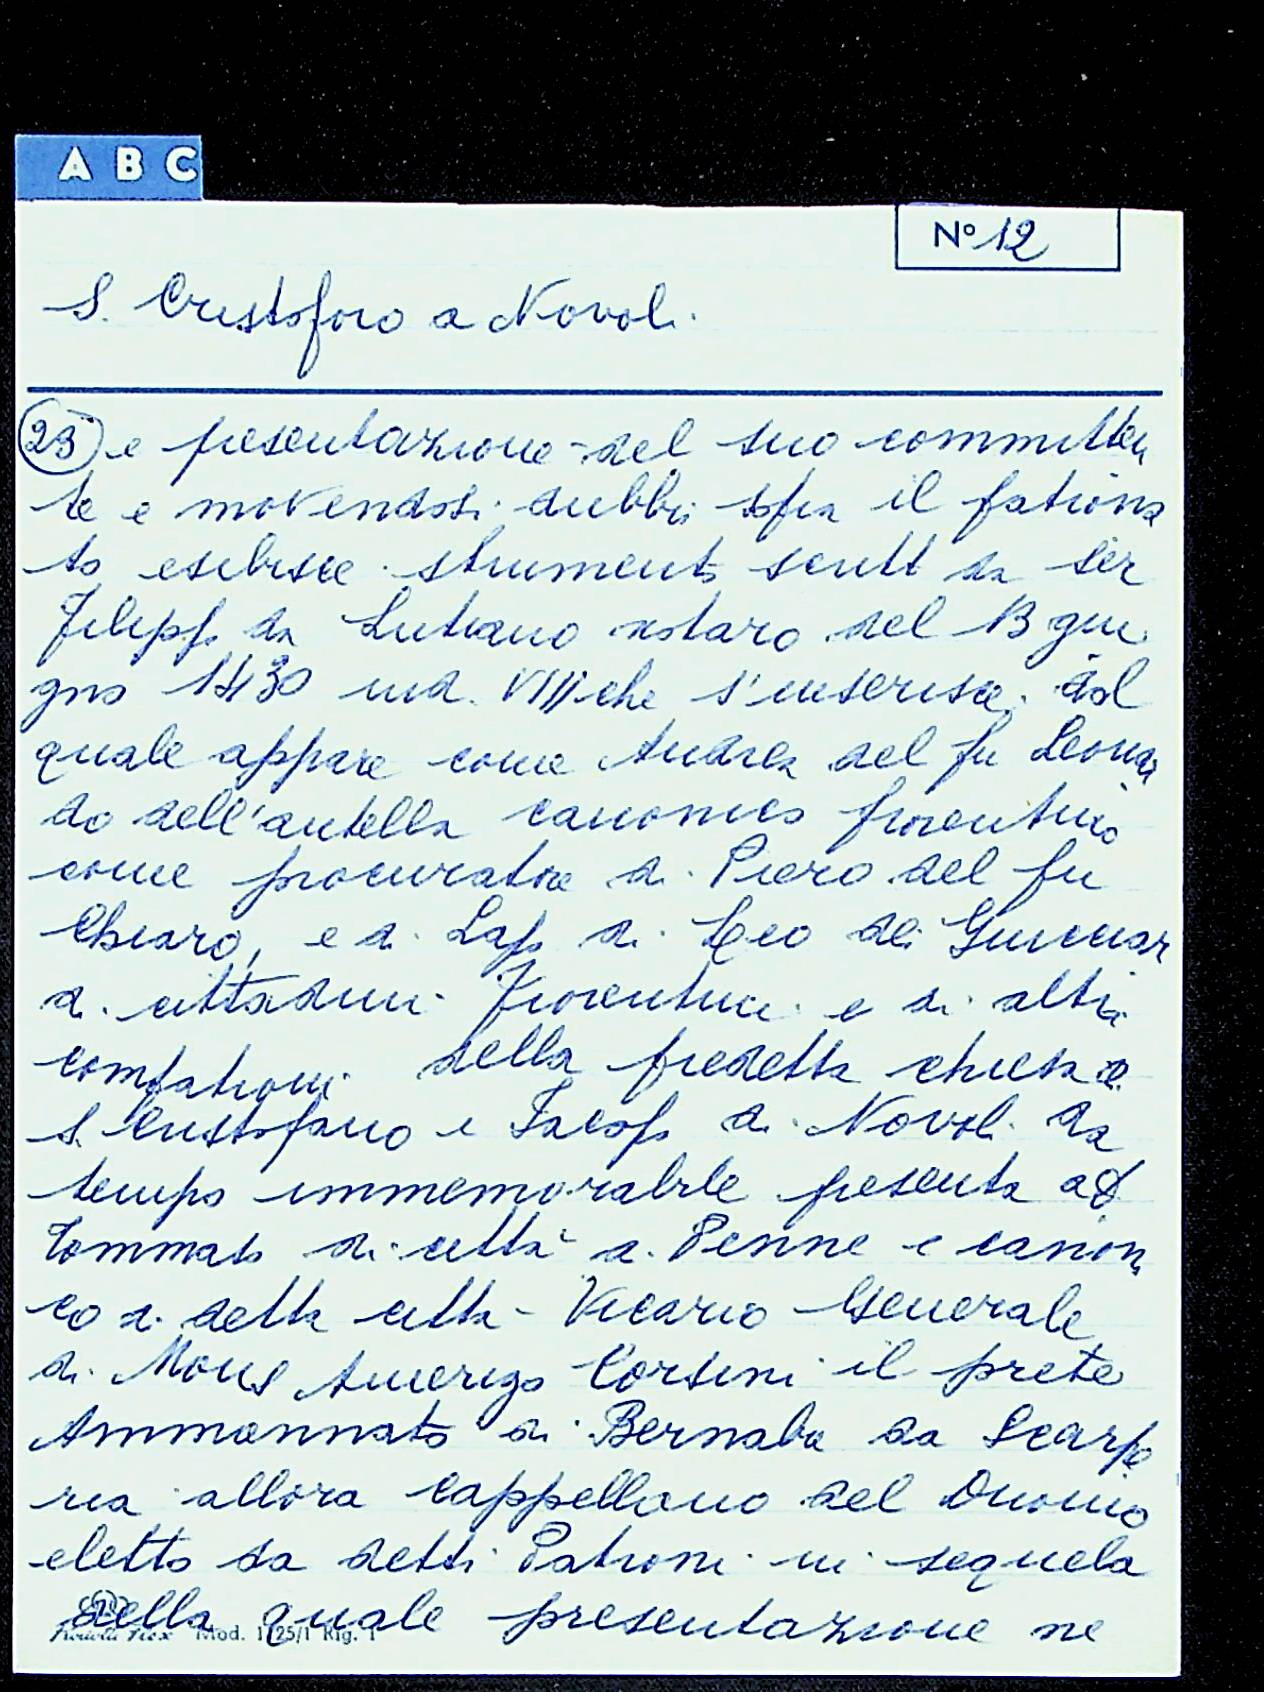 A B C
Nº 12
S. Cristoforo a Novoli.
(23) e presentazione del suo committen
te e movendosi dubbii sopra il patrona
to esibisce strumento scritt da ser
Filippo da Lutiano notaro del 13 giu
gno 1430 ind. VIII che s'inserisce. dal
quale appare come Andrea del fu Leonar
do dell'antella canonico fiorentino
come procuratore di Piero del fu
Chiaro, e di Lapo di Ceo dei Guicciar
di cittadini Fiorentini e di altri
compatroni della predetta chiesa di
S. Cristofano e Jacopo di Novoli da
tempo immemorabile presenta ad
Tommaso di città di Penne e canoni
co di detta città Vicario Generale
di Mons Amerigo Corsini il prete
Ammannato di Bernaba da Scarpe
ria allora Cappellano del Duomo
eletto da detti Patroni in sequela
della quale presentazione ne
Mod. 1125/1 Rig. 1